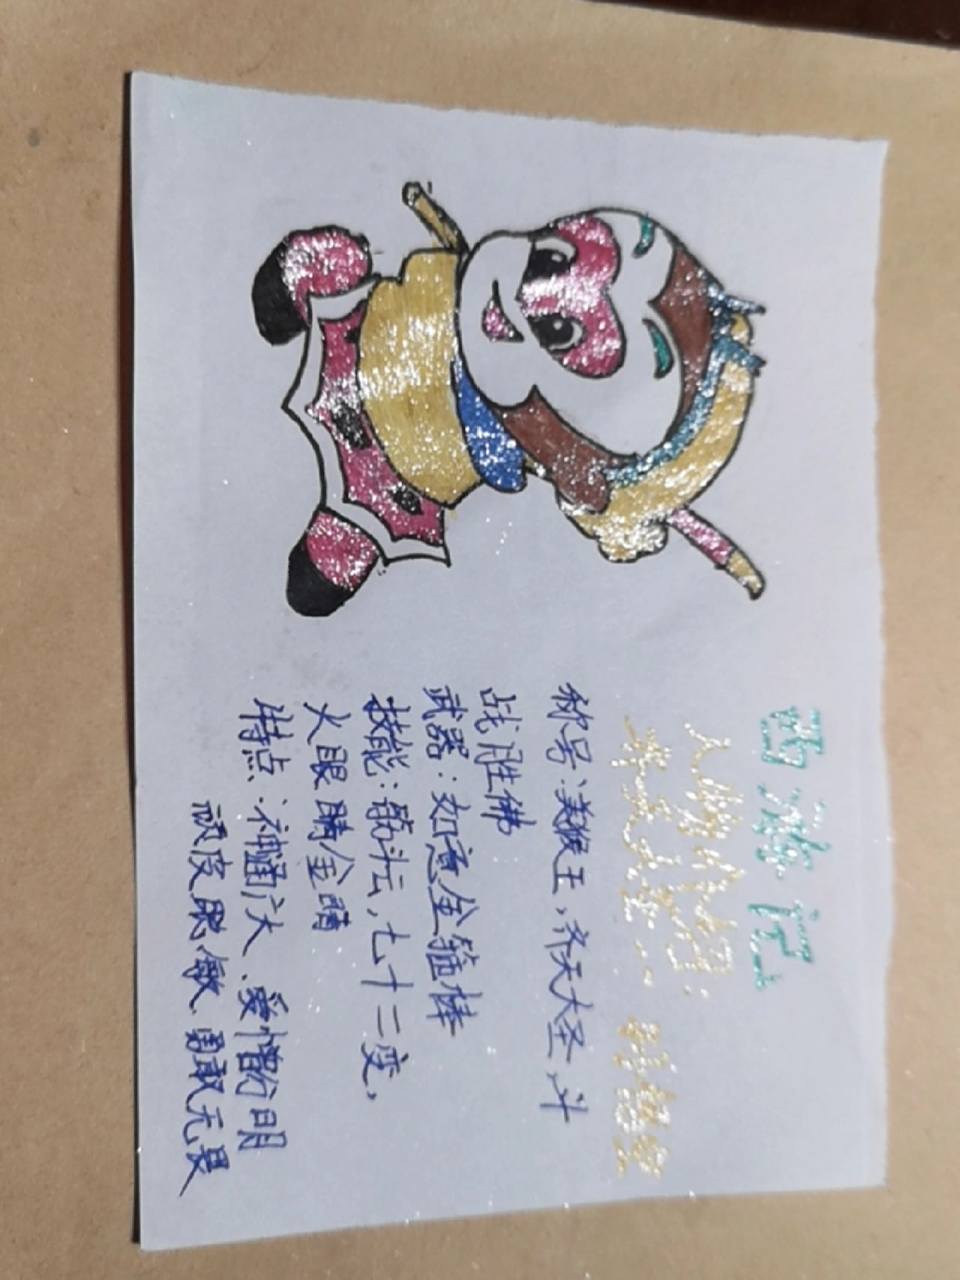 西游记
人物介绍:
齐天大圣—— 孙悟空
称号:美猴王,齐天大圣,斗
战胜佛
武器:如意金箍棒
技能:筋斗云,七十二变,
火眼睛金睛
特点:神通广大、爱憎分明
顽皮聪敏、勇敢无畏